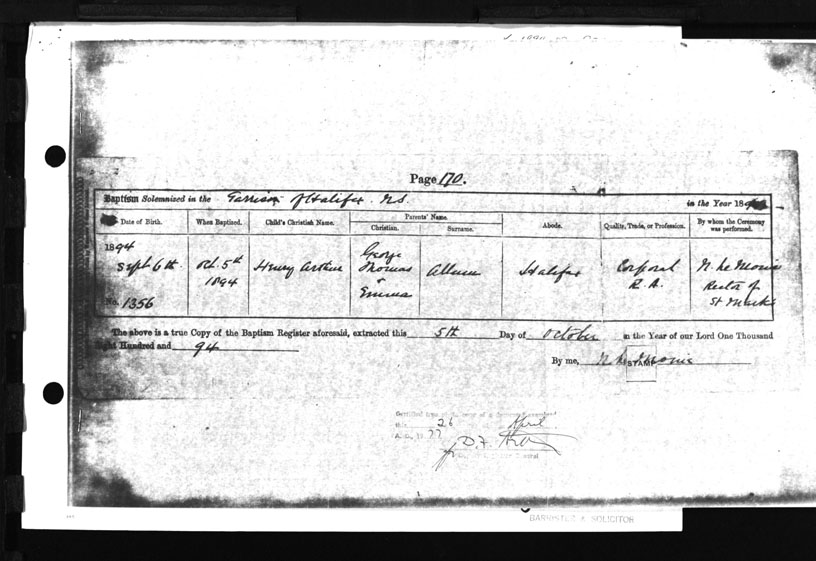 Page 170.
Baptism Solemnized in the Garrison of Halifax N.S. in the Year 18
Date of Birth. When Baptised. Child's Christian Name. Parents' Name. Abode. Quality, Trade, or Profession. By whom the Ceremony was performed.
Christian. Surname.
1894 Sept 6th Oct. 5th 1894 Henry Arthur George Thomas Emma Halifax Corporal R.A. Rector of St Marks
No. 1356
The above is a true Copy of the Baptism Register aforesaid, extracted this 5th Day of October in the Year of our Lord One Thousand
Eight Hundred and 94
By me,
STAMP
this 26 April
A.D. 19 77
BARRISTER & SOLICITOR